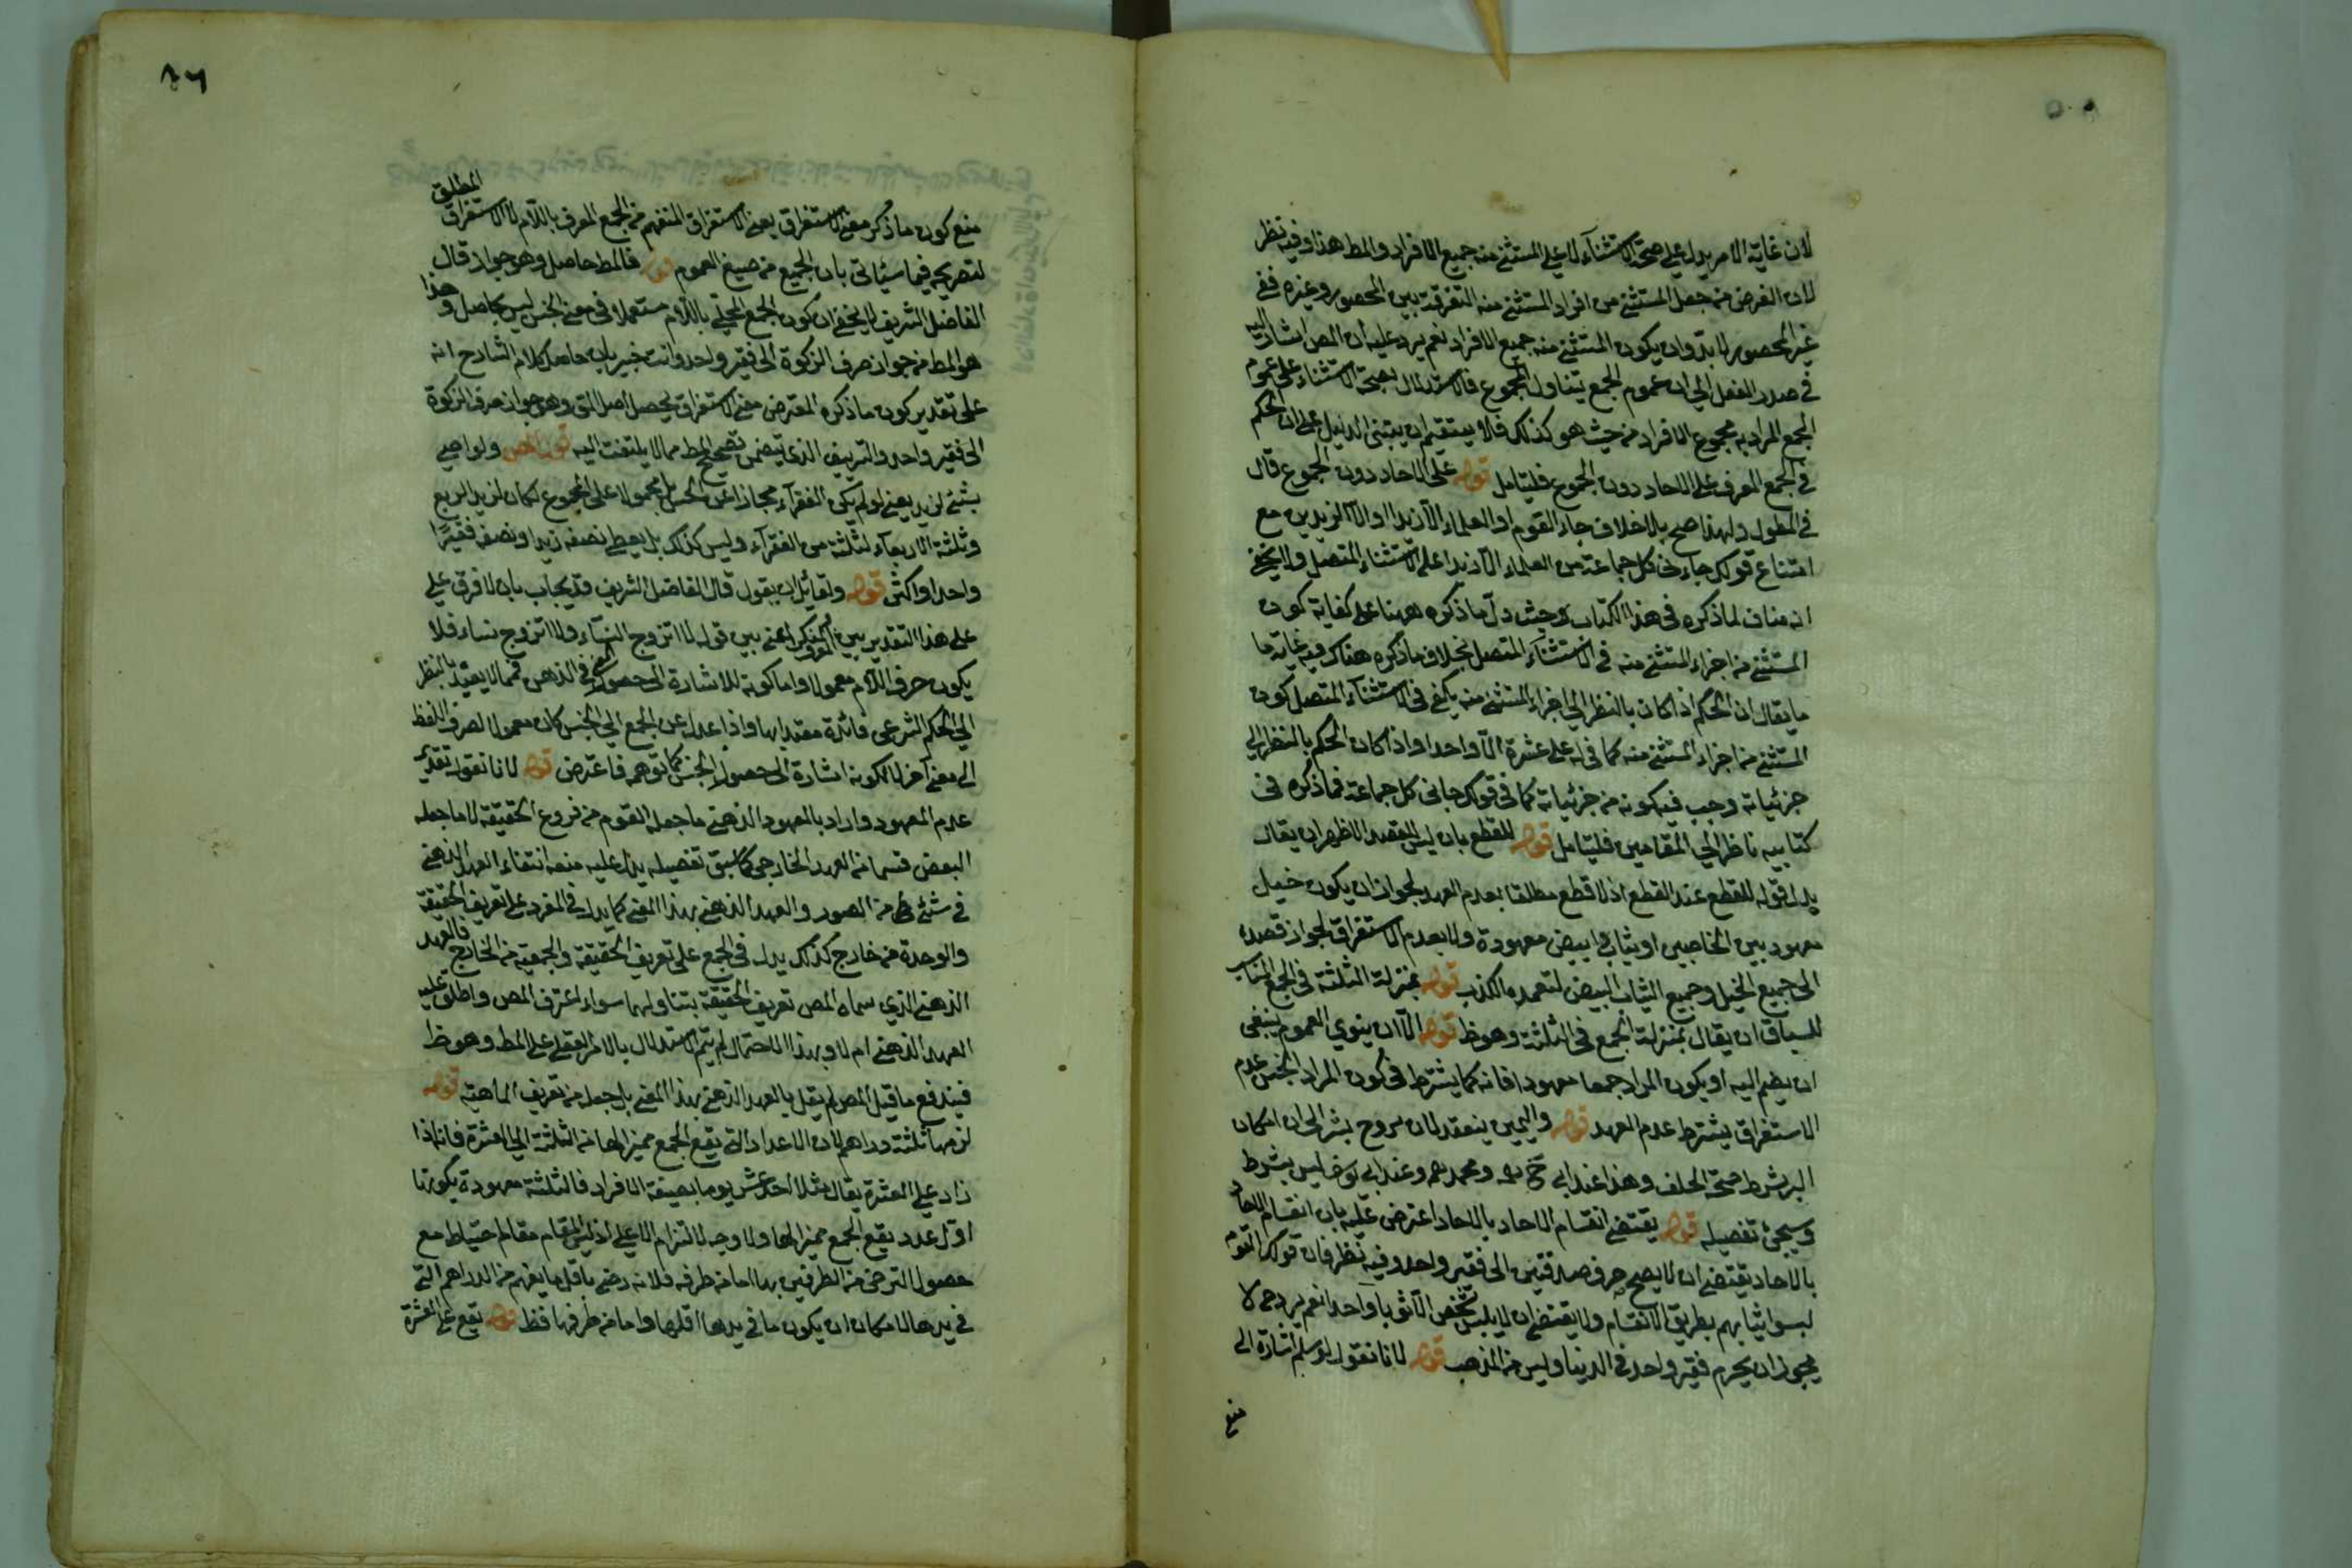 لان غاية الامر يدل على صحة الاستثناء لا على المستثنى منه جميع الافراد والمط هذا وفيه نظر
لان الغرض من جعل المستثنى من افراد المستثنى منه التفرقة بين المحصور وغيره ففي
غير المحصور لا بد وان يكون المستثنى منه جميع الافراد نعم يرد عليه ان المص اشار اليه
في صدر الفصل الى ان عموم الجمع يتناول المجموع فالاستدلال بصحة الاستثناء على عموم
الجمع المراد به مجموع الافراد من حيث هو كذلك فلا يستقيم ان يبتنى الدليل على ان الحكم
في الجمع المعرف على الاحاد دون المجموع فليتامل قوله على الاحاد دون المجموع قال
في المطول ولهذا صح بلا خلاف جاء القوم او العلماء الا زيدا او الا الزيدين مع
امتناع قولك جاءنى كل جماعة من العلماء الا زيدا على الاستثناء المتصل ولا يخفى
انه مناف لما ذكره في هذا الكتاب حيث دل ما ذكره ههنا على كفاية كون
المستثنى من اجزاء المستثنى منه في الاستثناء المتصل بخلاف ما ذكره هناك فيه غاية ما
ما يقال ان الحكم اذا كان بالنظر الى اجزاء المستثنى منه يكفى في الاستثناء المتصل كون
المستثنى من اجزاء المستثنى منه كما في له على عشرة الا واحدا واذا كان الحكم بالنظر الى
جزئياته وجب فيه كونه من جزئياته كما في قولك جاءنى كل جماعة فما ذكره في
كتابيه ناظر الى المقامين فليتامل قوله للقطع بان ليس القصد الاظهر ان يقال
بدل قوله للقطع عند القطع اذ لا قطع مطلقا بعدم العهد لجواز ان يكون خيل
معهود بين الخاصين او ثياب ابيض معهودة ولا بعدم الاستغراق لجواز قصده
الى جميع الخيل وجميع الثياب البيض لتعمده الكذب قوله بمنزلة الثلثة في الجمع المناسب
للسياق ان يقال بمنزلة الجمع في الثلثة وهو ظ قوله الا ان ينوي العموم ينبغى
ان يضم اليه او يكون المراد جمعا معهودا فانه كما يشترط في كون المراد الجنس عدم
الاستغراق يشترط عدم العهد قوله واليمين ينعقد لان مروح بشر الى ان امكان
البر شرط صحة الحلف وهذا عند ابي ح رحمه ومحمد رحمه وعند ابي يوسف ليس بشرط
وسيجئ تفصيله قوله يقتضى انقسام الاحاد بالاحاد اعترض عليه بان انقسام الاحاد
بالاحاد يقتضى ان لا يصح صرف صدقتين الى فقير واحد وفيه نظر فان قولك القوم
لبسوا ثيابهم بطريق الانقسام ولا يقتضى ان لا يلبس شخص الا ثوبا واحدا نعم يرد ح لا
يجوز ان يحرم فقير واحد في الدنيا وليس من المذهب قوله لانا نقول لو سلم اشارة الى
منع
٨٦
المطلق
منع كون ما ذكر معنى الاستغراق يعنى الاستغراق المنفهم من الجمع المعرف باللام لا الاستغراق
لتصريحه فيما سيأتى بان الجمع من صيغ العموم قوله فالمط حاصل وهو جواز قال
الفاضل الشريف لا يخفى ان كون الجمع المحلى باللام مستعملا في معنى الجنس ليس بحاصل وهذا
هو المط من جواز صرف الزكوة الى فقير واحد وانت خبير بان حاصل كلام الشارح انه
على تقدير كون ما ذكره المعترض معنى الاستغراق يحصل اصل المتن وهو جواز صرف الزكوة
الى فقير واحد والتزييف الذي يتضمن تصحيح المط مما لا يلتفت اليه قوله ولو اوصى
بشئ لزيد يعنى لو لم يكن الفقراء مجازا عن الجنس بل محمولا على المجموع لكان لزيد الربع
وثلثة الارباع لثلثة من الفقراء وليس كذلك بل يعطى نصفه زيدا ونصفه فقيرا
واحدا او اكثر قوله ولقائل ان يقول قال الفاضل الشريف قد يجاب بان لا فرق على
على هذا التقدير بين المعرف والمنكر اعنى بين قوله لا اتزوج النساء ولا اتزوج نساء فلا
يكون حرف اللام معمولا واما كونه للاشارة الى حصول الجنس في الذهن فمما لا يعتد بالنظر
الى الحكم الشرعى فائدة معتدا بها واذا عدل عن الجمع الى الجنس كان معمولا لصرف اللفظ
الى معنى آخر لا لكونه اشارة الى حصول الجنس كما توهم فاعترض قوله لانا نقول تقدير
عدم المعهود واراد بالمعهود الذهنى ما جعله القوم من فروع الحقيقة لا ما جعله
البعض قسما من العهد الخارجى كما سبق تفصيله يدل عليه منعه انتفاء العهد الذهنى
في شئ من الصور والعهد الذهنى بهذا المعنى كما يدل في المفرد على تعريف الحقيقة
والوحدة من خارج كذلك يدل في الجمع على تعريف الحقيقة والجمعية من الخارج فالعهد
الذهنى الذي سماه المص تعريف الحقيقة يتناولهما سواء اعترف المص واطلق عليه
العهد الذهنى ام لا وبهذا الاحتمال لم يتم الاستدلال بالامر العقلى على المط وهو ظ
فيندفع ما قيل المص لم يقل بالعهد الذهنى بهذا المعنى بل جعله من تعريف الماهية قوله
لزمها ثلثة دراهم لان الاعداد التى يقع الجمع مميزا لها من الثلثة الى العشرة فانه اذا
زاد على العشرة يقال مثلا احد عشر يوما بصيغة الافراد فالثلثة معهودة بكونها
اول عدد يقع الجمع مميزا لها ولا وجه لالتزام الاعلى اذ ليس المقام مقام احتياط مع
حصول التراضى من الطرفين بها اما من طرفه فلانه رضى باقل ما يفهم من الدراهم التى
في يدها لامكان ان يكون ما في يدها اقلها واما من طرفها فظ قوله يقع على العشرة